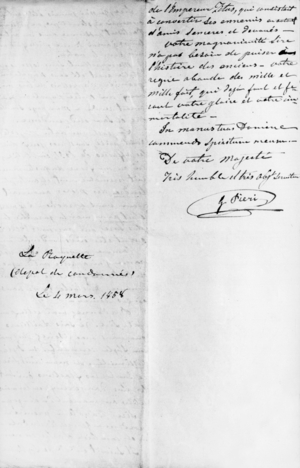 de l'Empereur Titus, qui consistait
à convertir ses ennemis en autant
d'amis sinceres et devoués —
votre magnanimité Sire
n'a pas besoin de puiser dans
l'histoire des anciens — votre
regne abonde des mille et
mille fait qui deja font et fe
ront votre gloire et votre im
mortalité —
In manus tuas Domine
commendo Spiritum meum —
De votre Majesté
Très humble et très ob.t Serviteur
J. Pieri
La Roquette
(depot de condamnés)
Le 4 mars. 1858